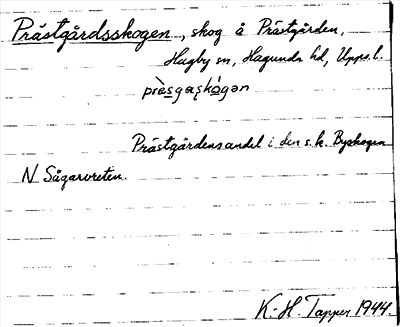 Prästgårdsskogen, skog å Prästgården,
Hagby sn, Hagunda hd, Upps. l.
Prästgårdens andel i den s.k. Byskogen
N Sågarvreten.
K.-H. Tapper 1944.